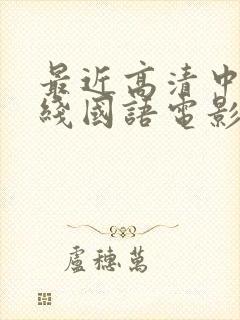 最近高清中
綫國語電影
盧穗萬